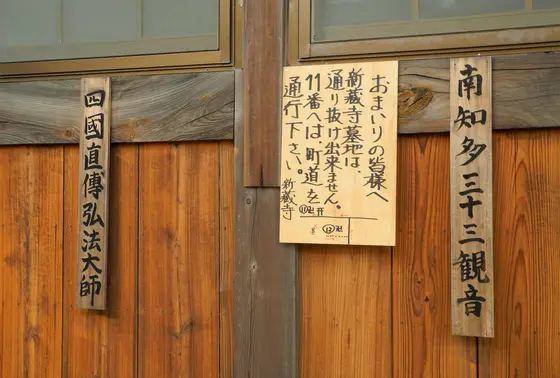 南知多三十三観音
おまいりの皆様へ
新蔵寺墓地は、
通り抜け出来ません。
11番へは、町道を
通行下さい。
新蔵寺
⑪卍
⑫卍
四國直傳弘法大師